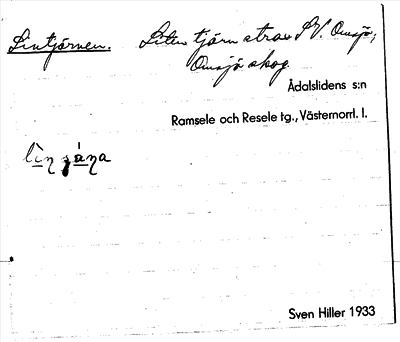 Lintjärnen. Liten tjärn strax S.V. Omsjö,
Omsjö skog
Ådalslidens s:n
Ramsele och Resele tg., Västernorrl. l.
Sven Hiller 1933